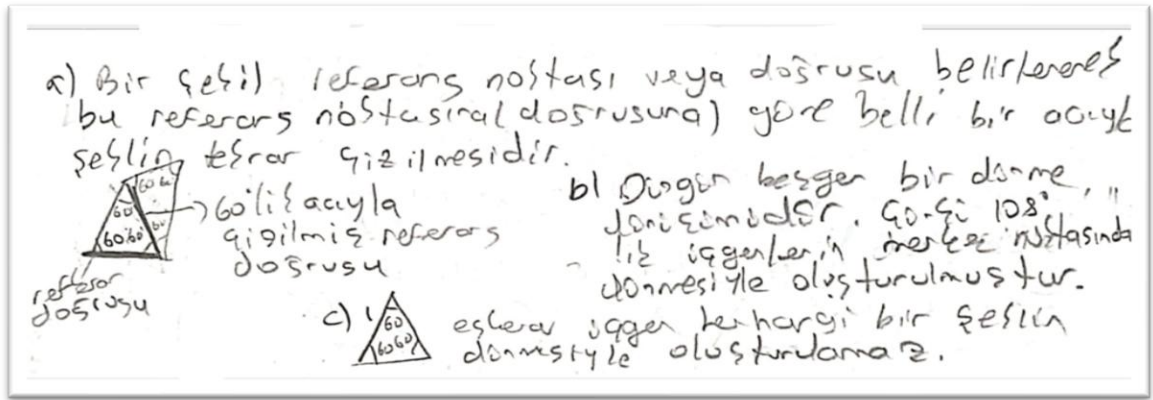 a) Bir şekil referans noktası veya doğrusu belirlenerek
bu referans noktasına(doğrusuna) göre belli bir açıyla
şeklin tekrar çizilmesidir.
60 60
60
60
60 60
→ 60'lik açıyla
çizilmiş referans
doğrusu
doğrusu
b) Düzgün beşgen bir dönme
dönüşümüdür. Çünkü 108°
lik üçgenlerin merkez noktasında
dönmesiyle oluşturulmuştur.
c)
60
60 60
eşkenar üçgen herhangi bir şeklin
dönmesiyle oluşturulamaz.